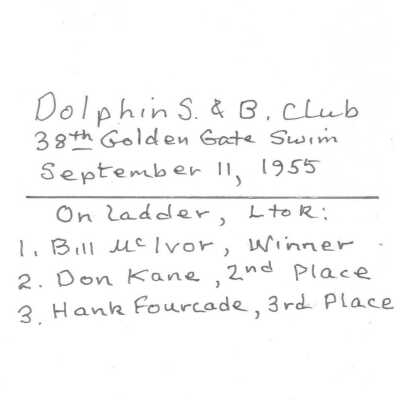 Dolphin S. & B. Club
38th Golden Gate Swim
September 11, 1955
On Ladder, L to R:
1. Bill McIvor, Winner
2. Don Kane, 2nd Place
3. Hank Fourcade, 3rd Place